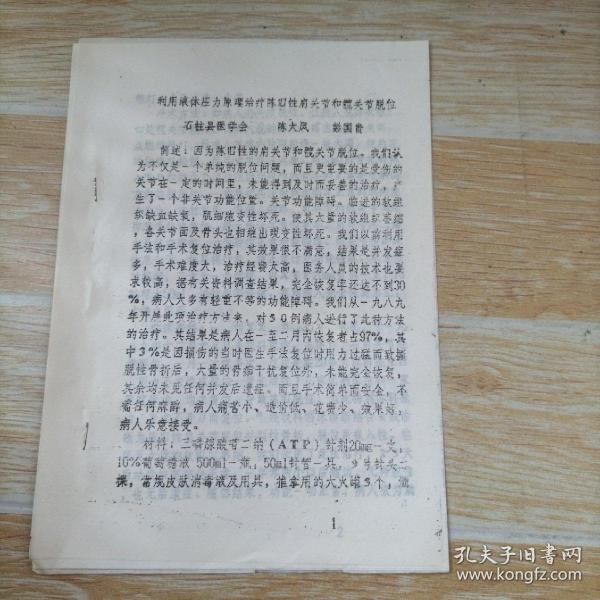 利用液体压力原理治疗陈旧性肩关节和髋关节脱位
石柱县医学会 陈大凤 彭国
简述:因为陈旧性的肩关节和髋关节脱位。我们认
为不仅是一个单纯的脱位问题,而且更重要的是受伤的
关节在一定的时间里,未能得到及时而妥善的治疗,产
生了一个非关节功能位置。关节功能障碍。临近的软组
织缺血缺氧,肌细胞变性坏死。使其大量的软组织萎缩
,各关节面及骨头也相继出现变性坏死。我们以前利用
手法和手术复位治疗,其效果很不满意,结果是并发症
多,手术难度大,治疗经费太高,医务人员的技术也要
求较高,据有关资料调查结果,完全恢复率还达不到30
%,病人大多有轻重不等的功能障碍。我们从一九八九
年开展此项治疗方法来,对50例病人进行了此种方法
的治疗。其结果是病人在一至二月内恢复者占97%,其
中3%是因损伤的当时医生手法复位时用力过猛而致撕
脱性骨折后,大量的骨痂干扰复位外,未能完全恢复,
其余均未见任何并发后遗症。而且手术简单而安全,不
需任何麻醉,病人痛苦小、造价低、花费少、效果好,
病人乐意接受。
材料:三磷腺酸苷二钠(ATP)针剂20mg一支,
10%葡萄糖液500ml一瓶,50ml针管一具,9号针头二
棵,常规皮肤消毒液及用具,推拿用的大火罐3个,
1
2
孔夫子旧书网
www.kongfz.com